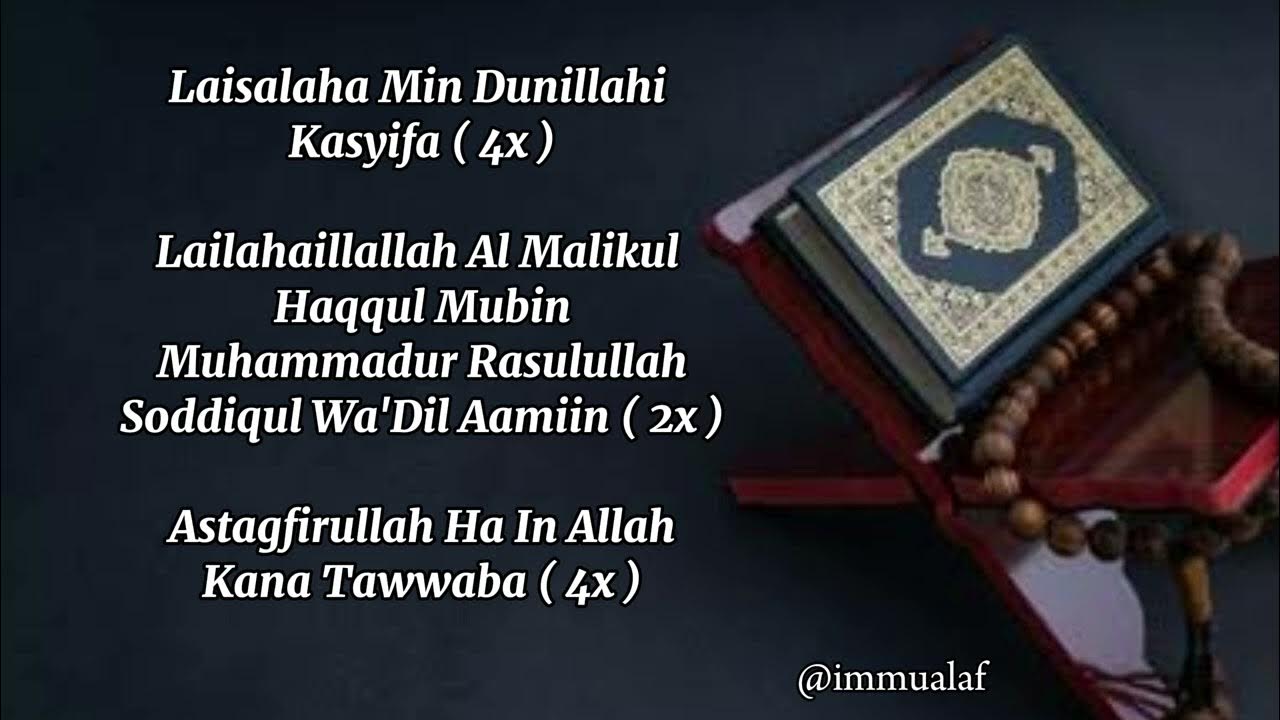 Laisalaha Min Dunillahi
Kasyifa ( 4x )
Lailahaillallah Al Malikul
Haqqul Mubin
Muhammadur Rasulullah
Soddiqul Wa'Dil Aamiin ( 2x )
Astagfirullah Ha In Allah
Kana Tawwaba ( 4x )
@immualaf